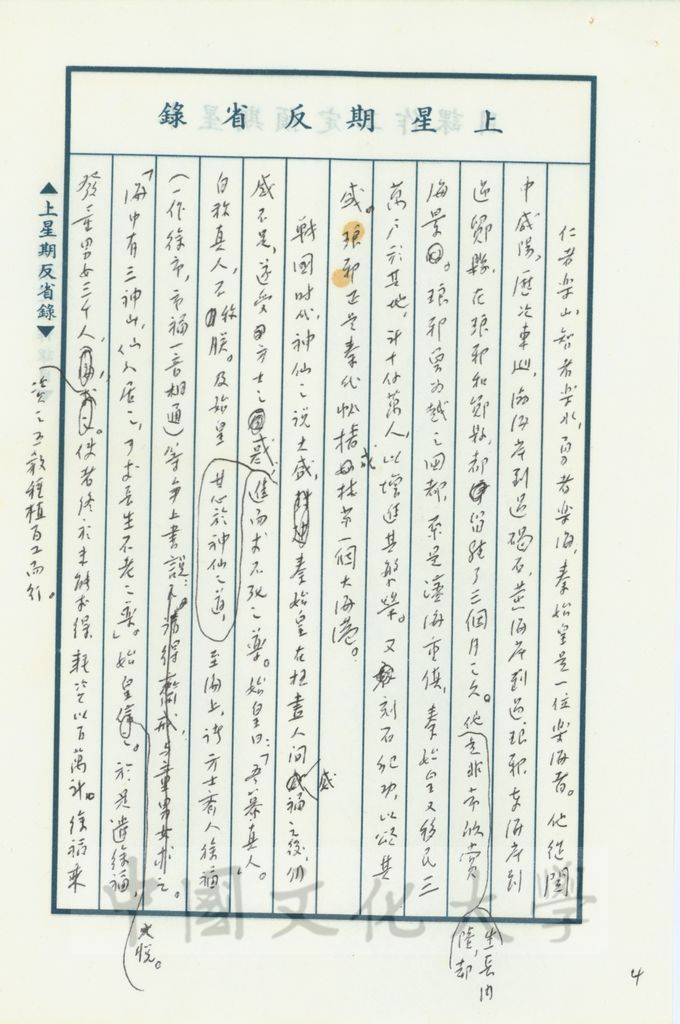 上星期反省錄
仁者樂山，智者樂水，勇者樂海，秦始皇是一位樂海者。他從關
中咸陽，歷次東巡，南海岸到過碣石，黃海岸到過琅邪，東海岸到
過鄮縣，在琅邪和鄮縣，都留駐了三個月之久。他生長內陸，卻是非常欣賞
海景。琅邪曾為越之國都，原是濱海重鎮，秦始皇又移民三
萬戶於其地，計十餘萬人，以增進其繁榮。又刻石紀功，以頌其
盛。琅邪正是秦代中國第一個大海港。
戰國時代，神仙之說大盛，秦始皇在極盡人間之福之後，仍
感不足，遂受方士之惑，進而求不死之藥。始皇曰：「吾慕真人。」
自稱真人，不稱朕。及始皇其心於神仙之道，至海上，諸方士齊人徐福
（一作徐市，市福一音相通）等爭上書說：請得齋戒與童男女求之。
「海中有三神山，仙人居之，可求長生不老之藥。」始皇大悅。於是遣徐福，
發童男女三千人，資之五穀種植百工而行。使者終於未能求得，耗資以百萬計。徐福乘
▲上星期反省錄▼
中國文化大學
4